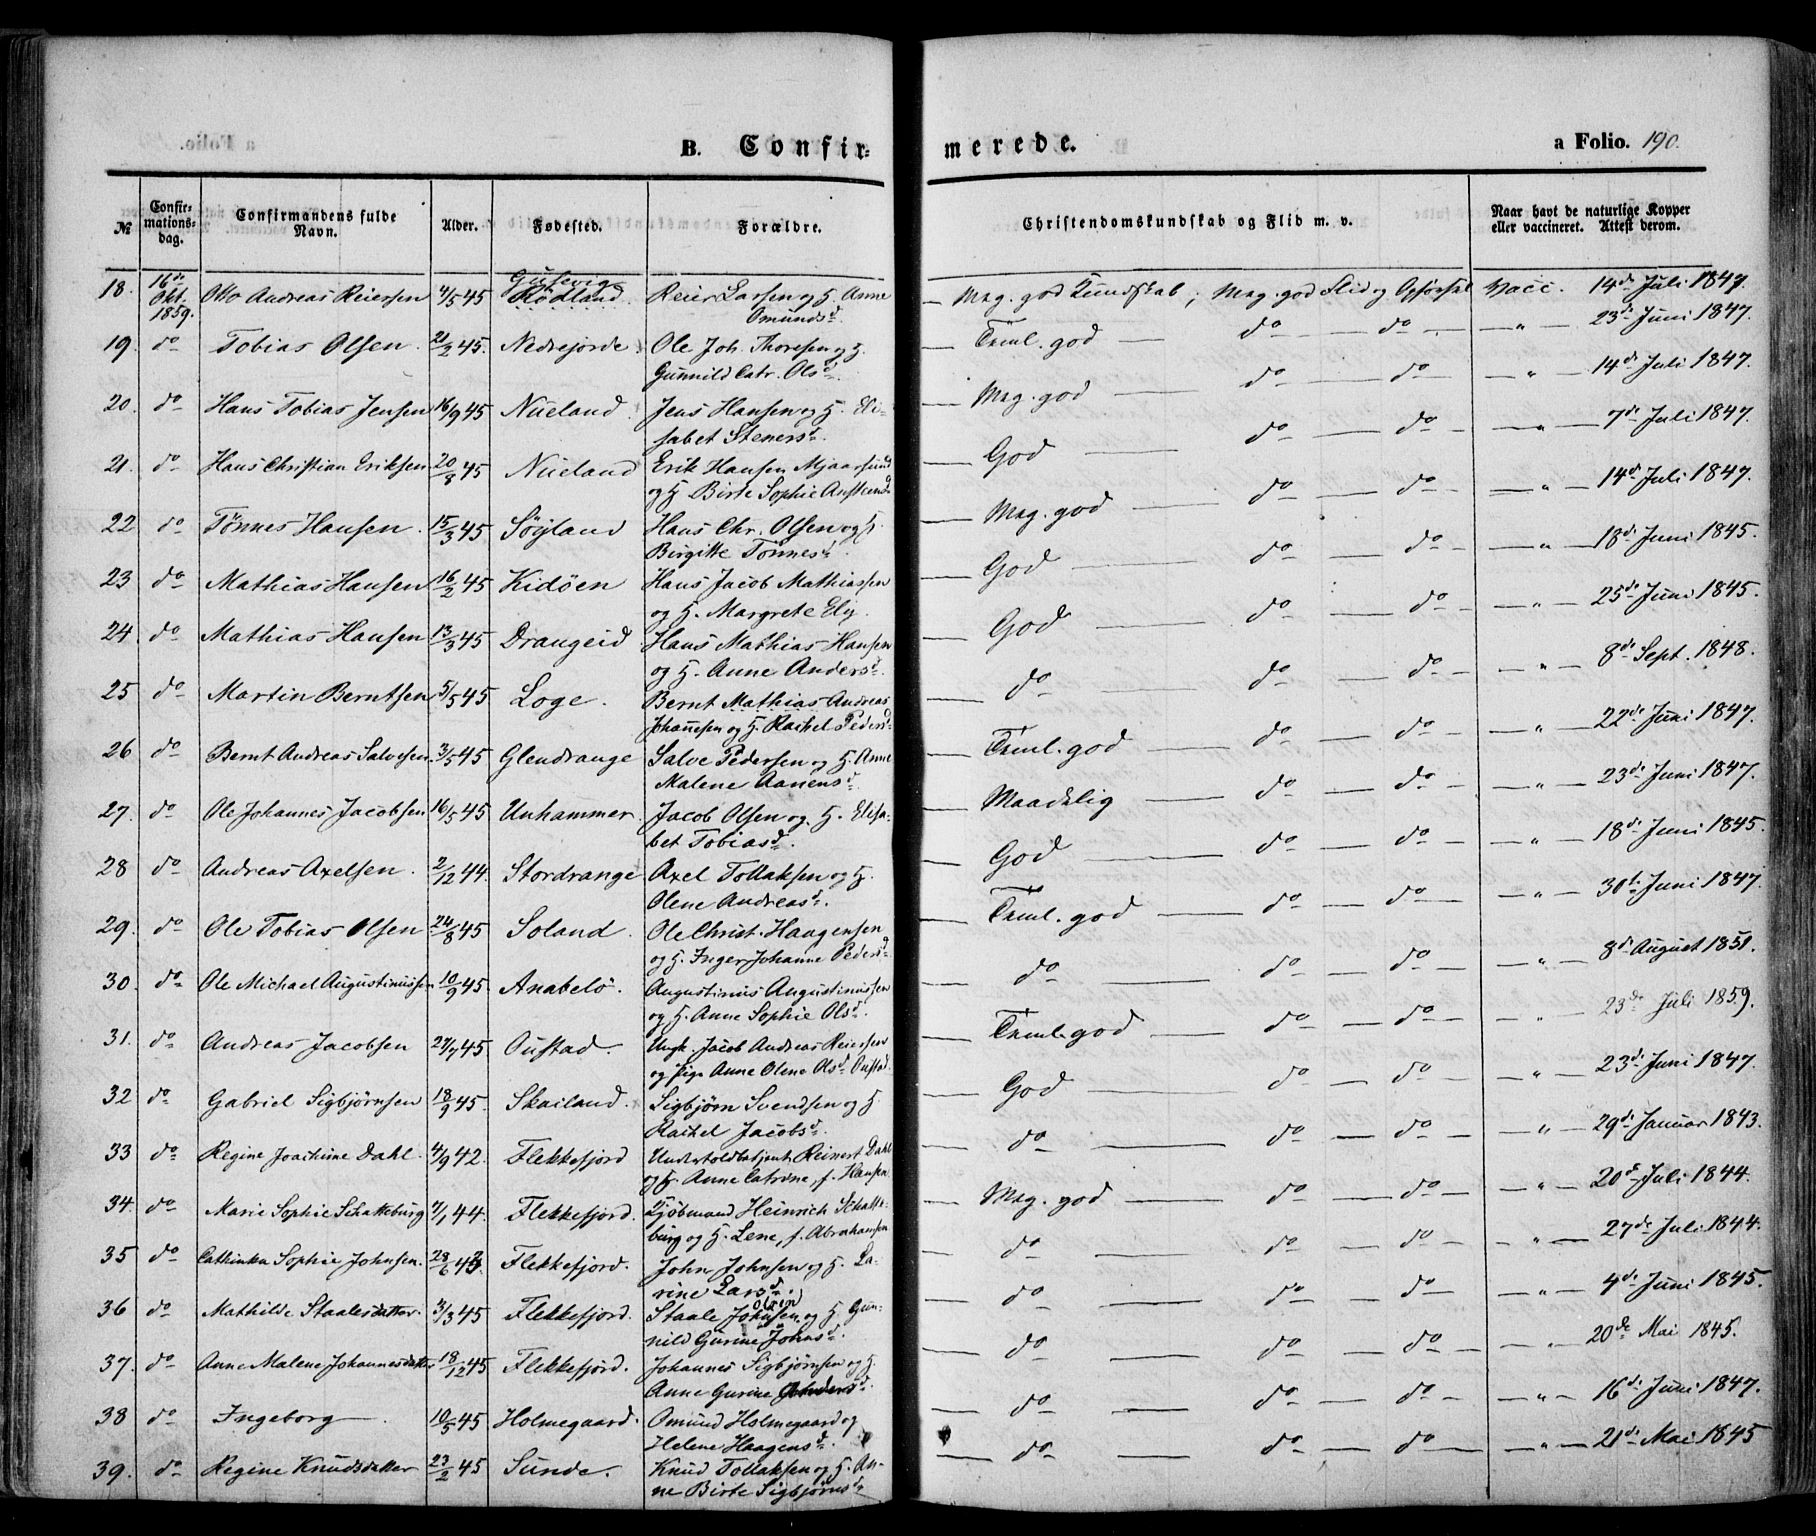 B. Confir-
merede.
a Folio. 190.
№
Confir-
mations-
dag.
Confirmandens fulde
Navn.
Alder.
Fødested.
Forældre.
Christendomskundskab og Flid m. v.
Naar havt de naturlige Kopper
eller vaccineret. Attest derom.
18. 16de Okt. 1859. Otto Andreas Reiersen 4/5 45 Rødland Reier Larsen og H. Anne — Meg. god Kundskab; Meg. god Flid og Opførsel Vacc. 14de Juli 1847.
Omundsd.
19. do Tobias Olsen. 21/2 45. Nedrejorde Ole Joh. Thoresen og H. — Teml. god do — do — „ — 23de Juni 1847.
Gunnild Catr. Olsd.
20. do Hans Tobias Jensen 16/9 45 Nueland. Jens Hansen og H. Eli- — Meg. god — do — do — „ — 14de Juli 1847.
sabet Stenersd.
21. do Hans Christian Eriksen 20/8 45 Nueland Erik Hansen Mjaasund — God — do — do — „ — 7de Juli 1847.
og H. Birte Sophie Austensd
22 do Tönnes Hansen. 15/3 45 Söyland Hans Chr. Olsen og H. — Meg. god — do — do — „ — 14de Juli 1847.
Birgitte Tönnesd.
23 do Mathias Hansen 16/2 45 Kidöen Hans Jacob Mathiassen — God — do — do — „ — 18de Juni 1845.
og H. Margrete Ely.
24. do Mathias Hansen 13/3 45 Drangeid Hans Mathias Hansen — God — do — do — „ — 25de Juni 1845.
og H. Anne Andersd.
25 do Martin Berntsen 5/5 45 Loge. Bernt Mathias Andreas — do — do — do — „ — 8de Sept. 1848.
Johannesen og H. Rachel Pedersd.
26 do Bernt Andreas Salvesen. 3/5 45 Glendrange Salve Pedersen og H. Anne — Teml. god — do — do — „ — 22de Juni 1847.
Malene Aanensd.
27. do Ole Johannes Jacobsen 16/5 45 Unhammer. Jacob Olsen og H. Elisa- — Maadelig — do — do — „ — 23de Juni 1847.
bet Tobiasd.
28 do Andreas Axelsen. 2/12 44. Stordrange Axel Tollaksen og H. — God — do — do — „ — 18de Juni 1845.
Olene Andreasd.
29. do Ole Tobias Olsen 24/8 45 Soland. Ole Christ. Haagensen — Teml. god — do — do — „ — 30te Juni 1847.
og H. Inger Johanne Pedersd
30. do Ole Michael Augustinussen 10/9 45 Anabelö. Augustinus Augustinussen — do — do — do — „ — 8de August 1851.
og H. Anne Sophie Olsd.
31. do Andreas Jacobsen 27/7 45. Oustad. Ungk. Jacob Andreas Reiersen — Teml. god — do — do — „ 23de Juli 1859.
og Pige Anne Olene Olsd. Oustad.
32 do Gabriel Sigbjørnsen 18/9 45. Skailand. Sigbjørn Svendsen og H — God — do — do — „ — 23de Juni 1847.
Rachel Jacobsd.
33 do Regine Joachime Dahl. 4/9 42. Flekkefjord Undertoldbetjent Reinert Dahl — do — do — do — „ — 29de Januar 1843.
og H. Anne Catrine, f. Hansen
34. do Marie Sophie Schatteburg 7/1 44. Flekkefjord. Kjöbmand Heinrich Schatte- — Meg. god — do — do — „ — 20de Juli 1844.
burg og H. Lene, f. Abrahamsen
35 do Cathinka Sophie Johnsen. 28/6 43. Flekkefjord. John Johnsen og H. La- — do — do — do — „ — 27de Juli 1844.
rine Larsd.
36 do Mathilde Staalesdatter. 3/3 45 Flekkefjord. Staale Johnsen og H Gun- — do — do — do — „ — 4de Juni 1845.
nild Gurine Johnsd.
37. do Anne Malene Johannesdatter 18/12 45 Flekkefjord. Johannes Sigbjørnsen og H. — do — do — do — „ — 20de Mai 1845.
Anne Gurine
38 do Ingeborg — 10/5 45 Holmegaard. Omund Holmegaard og — do — do — do — „ — 16de Juni 1847.
Helene Haagensd.
39. do Regine Knudsdatter 23/2 45 Sunde. Knud Tollaksen og H. An- — do — do — do — „ — 21de Mai 1845
ne Birte Sigbjørnsd.